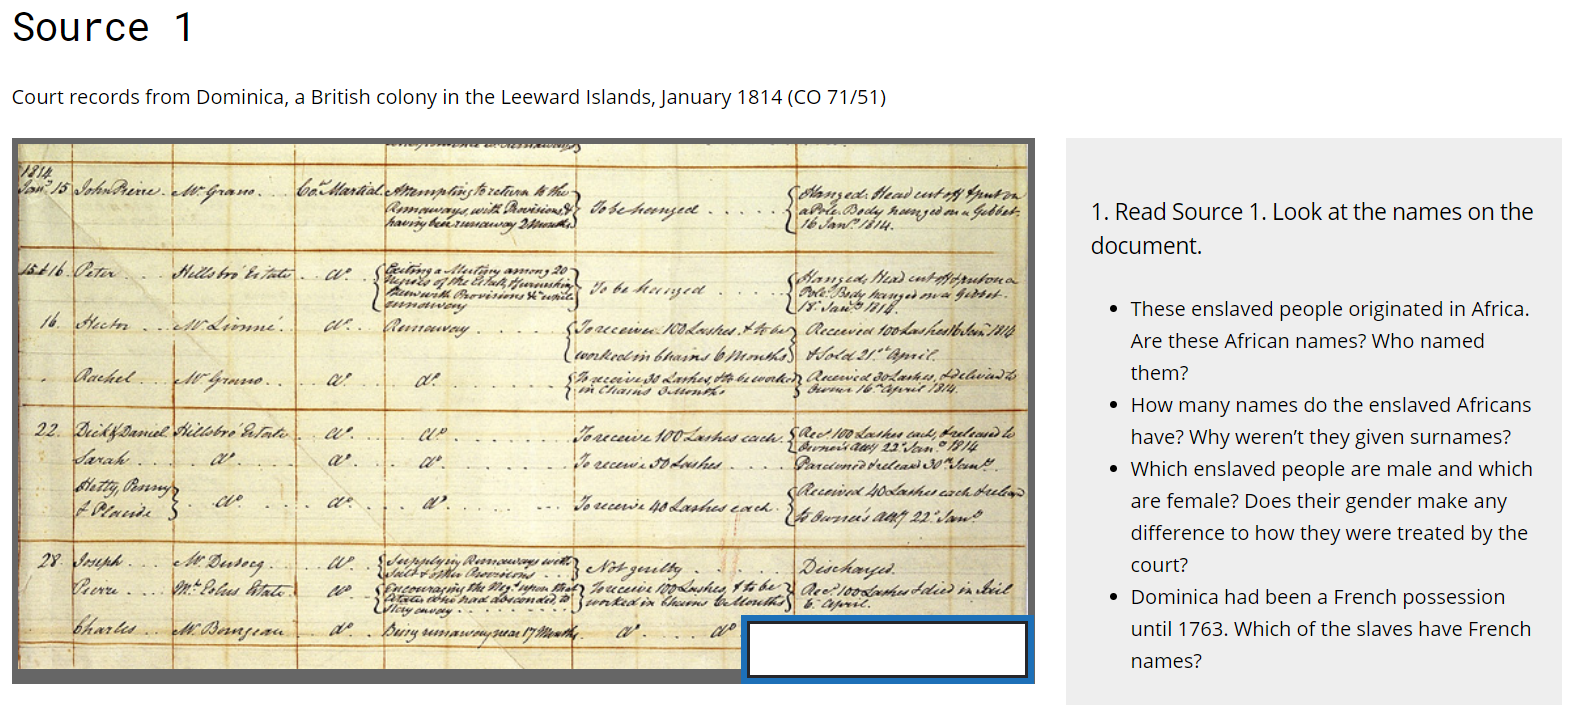 Source 1
Court records from Dominica, a British colony in the Leeward Islands, January 1814 (CO 71/51)
1814
Janʸ 15 John Pierre. Mʳ Grano. Coᵗ Martial. Attempting to return to the
Runaways, with Provisions, &
having been runaway 2 Months
To be hanged
Hanged, Head cut off & put on
a Pole. Body hung'd on a Gibbet.
16 Janʸ 1814.
15 & 16. Peter Hillsbro' Estate dº
Exciting a Mutiny among 20
Negroes of the Estate, & furnishing
them with Provisions &c while
runaway
To be hanged
Hanged, Head cut off & put on a
Pole. Body hanged on a Gibbet.
18 Janʸ 1814.
16. Hector Mʳ dº Runaway
To receive 100 Lashes, & to be
worked in Chains 6 Months
Received 100 Lashes 16 Janʸ 1814
& Sold 21ˢᵗ April.
Rachel Mʳ Grano. dº dº
To receive 30 Lashes, & to be worked
in Chains 3 Months
Received 30 Lashes, & delivered to
Owner 16 April 1814.
22. Dick & Daniel Hillsbro Estate dº dº To receive 100 Lashes each.
Recᵈ 100 Lashes each, & released to
Owner's Attʸ 22ᵈ Janʸ 1814
Sarah dº dº dº To receive 50 Lashes Pardoned & releas'd 30 Janʸ
Hetty, Penny
& Placide
dº dº dº To receive 40 Lashes each.
Received 40 Lashes each & releas'd
to Owner's Attʸ 22ᵈ Janʸ
28. Joseph Mʳ dº
Supplying Runaways with
Salt & other Provisions
Not guilty Discharged.
Pierre Estate. dº
Encouraging the Negˢ upon that
Estate who had absconded, to
stay away
To receive 100 Lashes, & to be
worked in Chains 6 Months
Recᵈ 100 Lashes & died in Jail
6 April.
Charles Mʳ Bourgeau dº Being runaway near 17 Months dº dº
1. Read Source 1. Look at the names on the
document.
• These enslaved people originated in Africa.
Are these African names? Who named
them?
• How many names do the enslaved Africans
have? Why weren’t they given surnames?
• Which enslaved people are male and which
are female? Does their gender make any
difference to how they were treated by the
court?
• Dominica had been a French possession
until 1763. Which of the slaves have French
names?